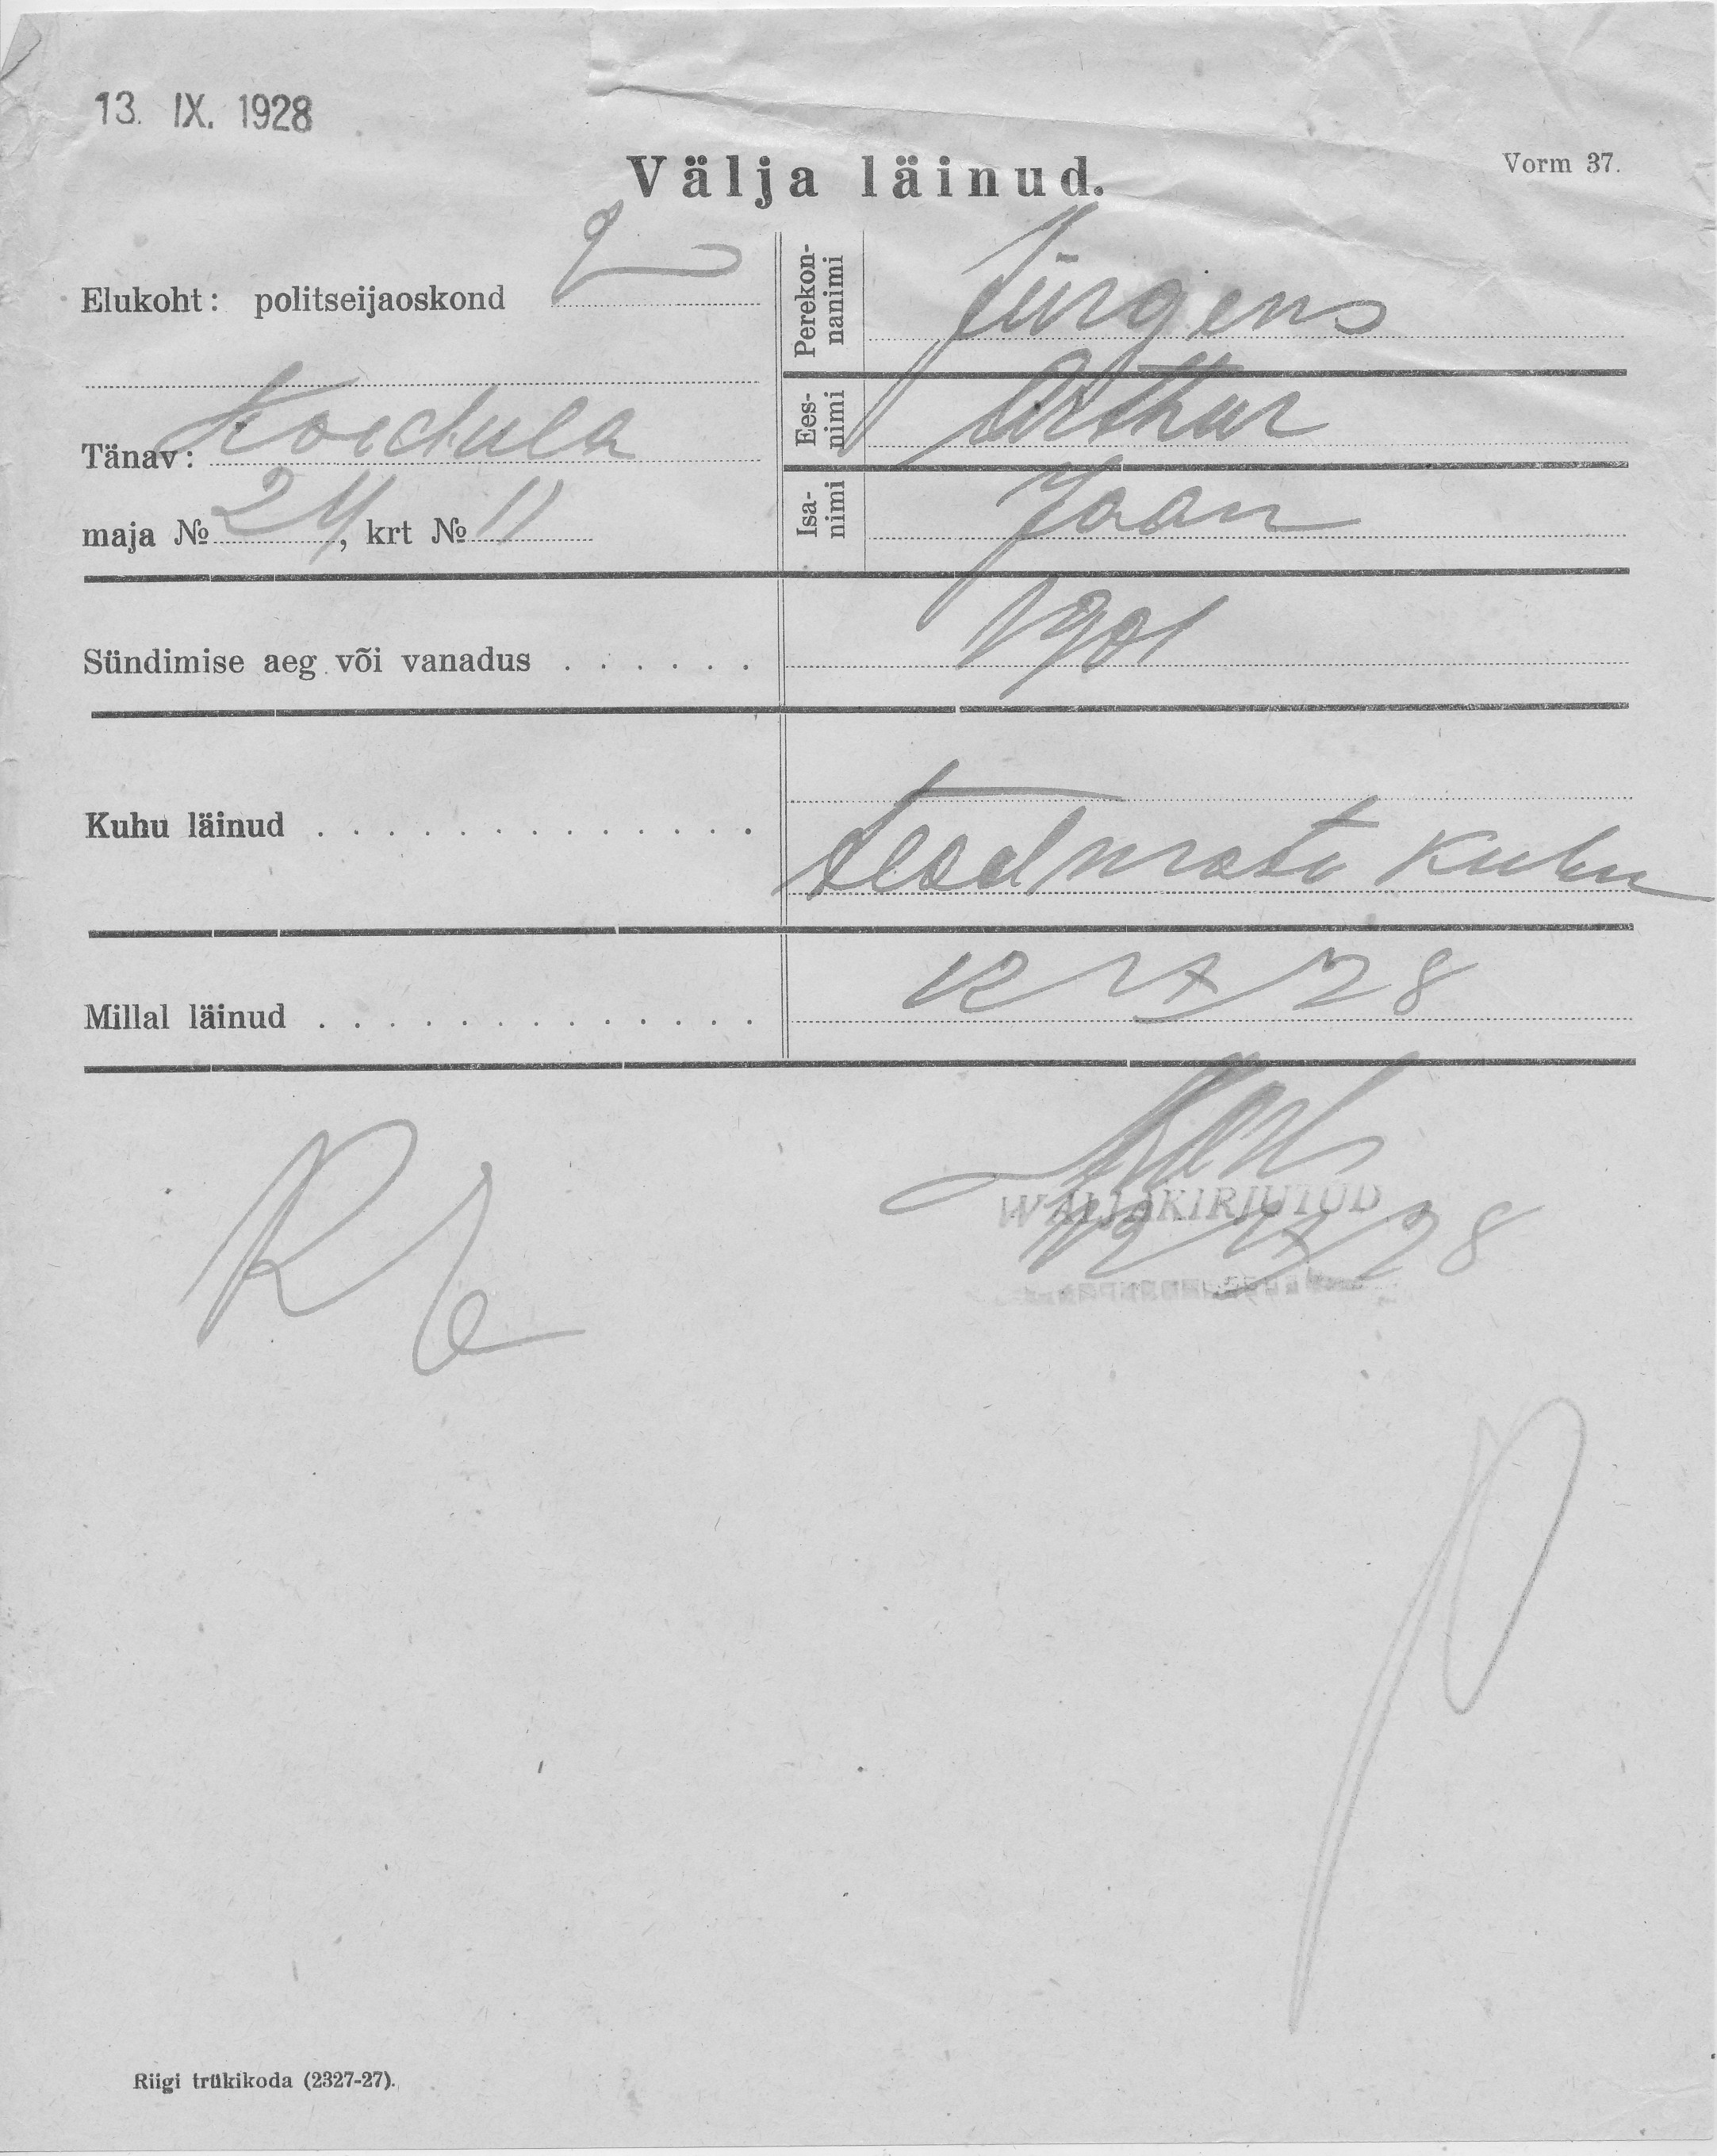 13. IX. 1928
Vorm 37.
Välja läinud.
Elukoht: politseijaoskond 2
Tänav: Koidula
maja № 24, krt № 11
Perekonnanimi Jürgens
Eesnimi Arthur
Isanimi Jaan
Sündimise aeg või vanadus . . . . . . 1901
Kuhu läinud . . . . . . . . . . . . . teadmata kuhu
Millal läinud . . . . . . . . . . . . . 12 IX 28
WÄLJAKIRJUTUD
12 IX 28
Riigi trükikoda (2327-27).